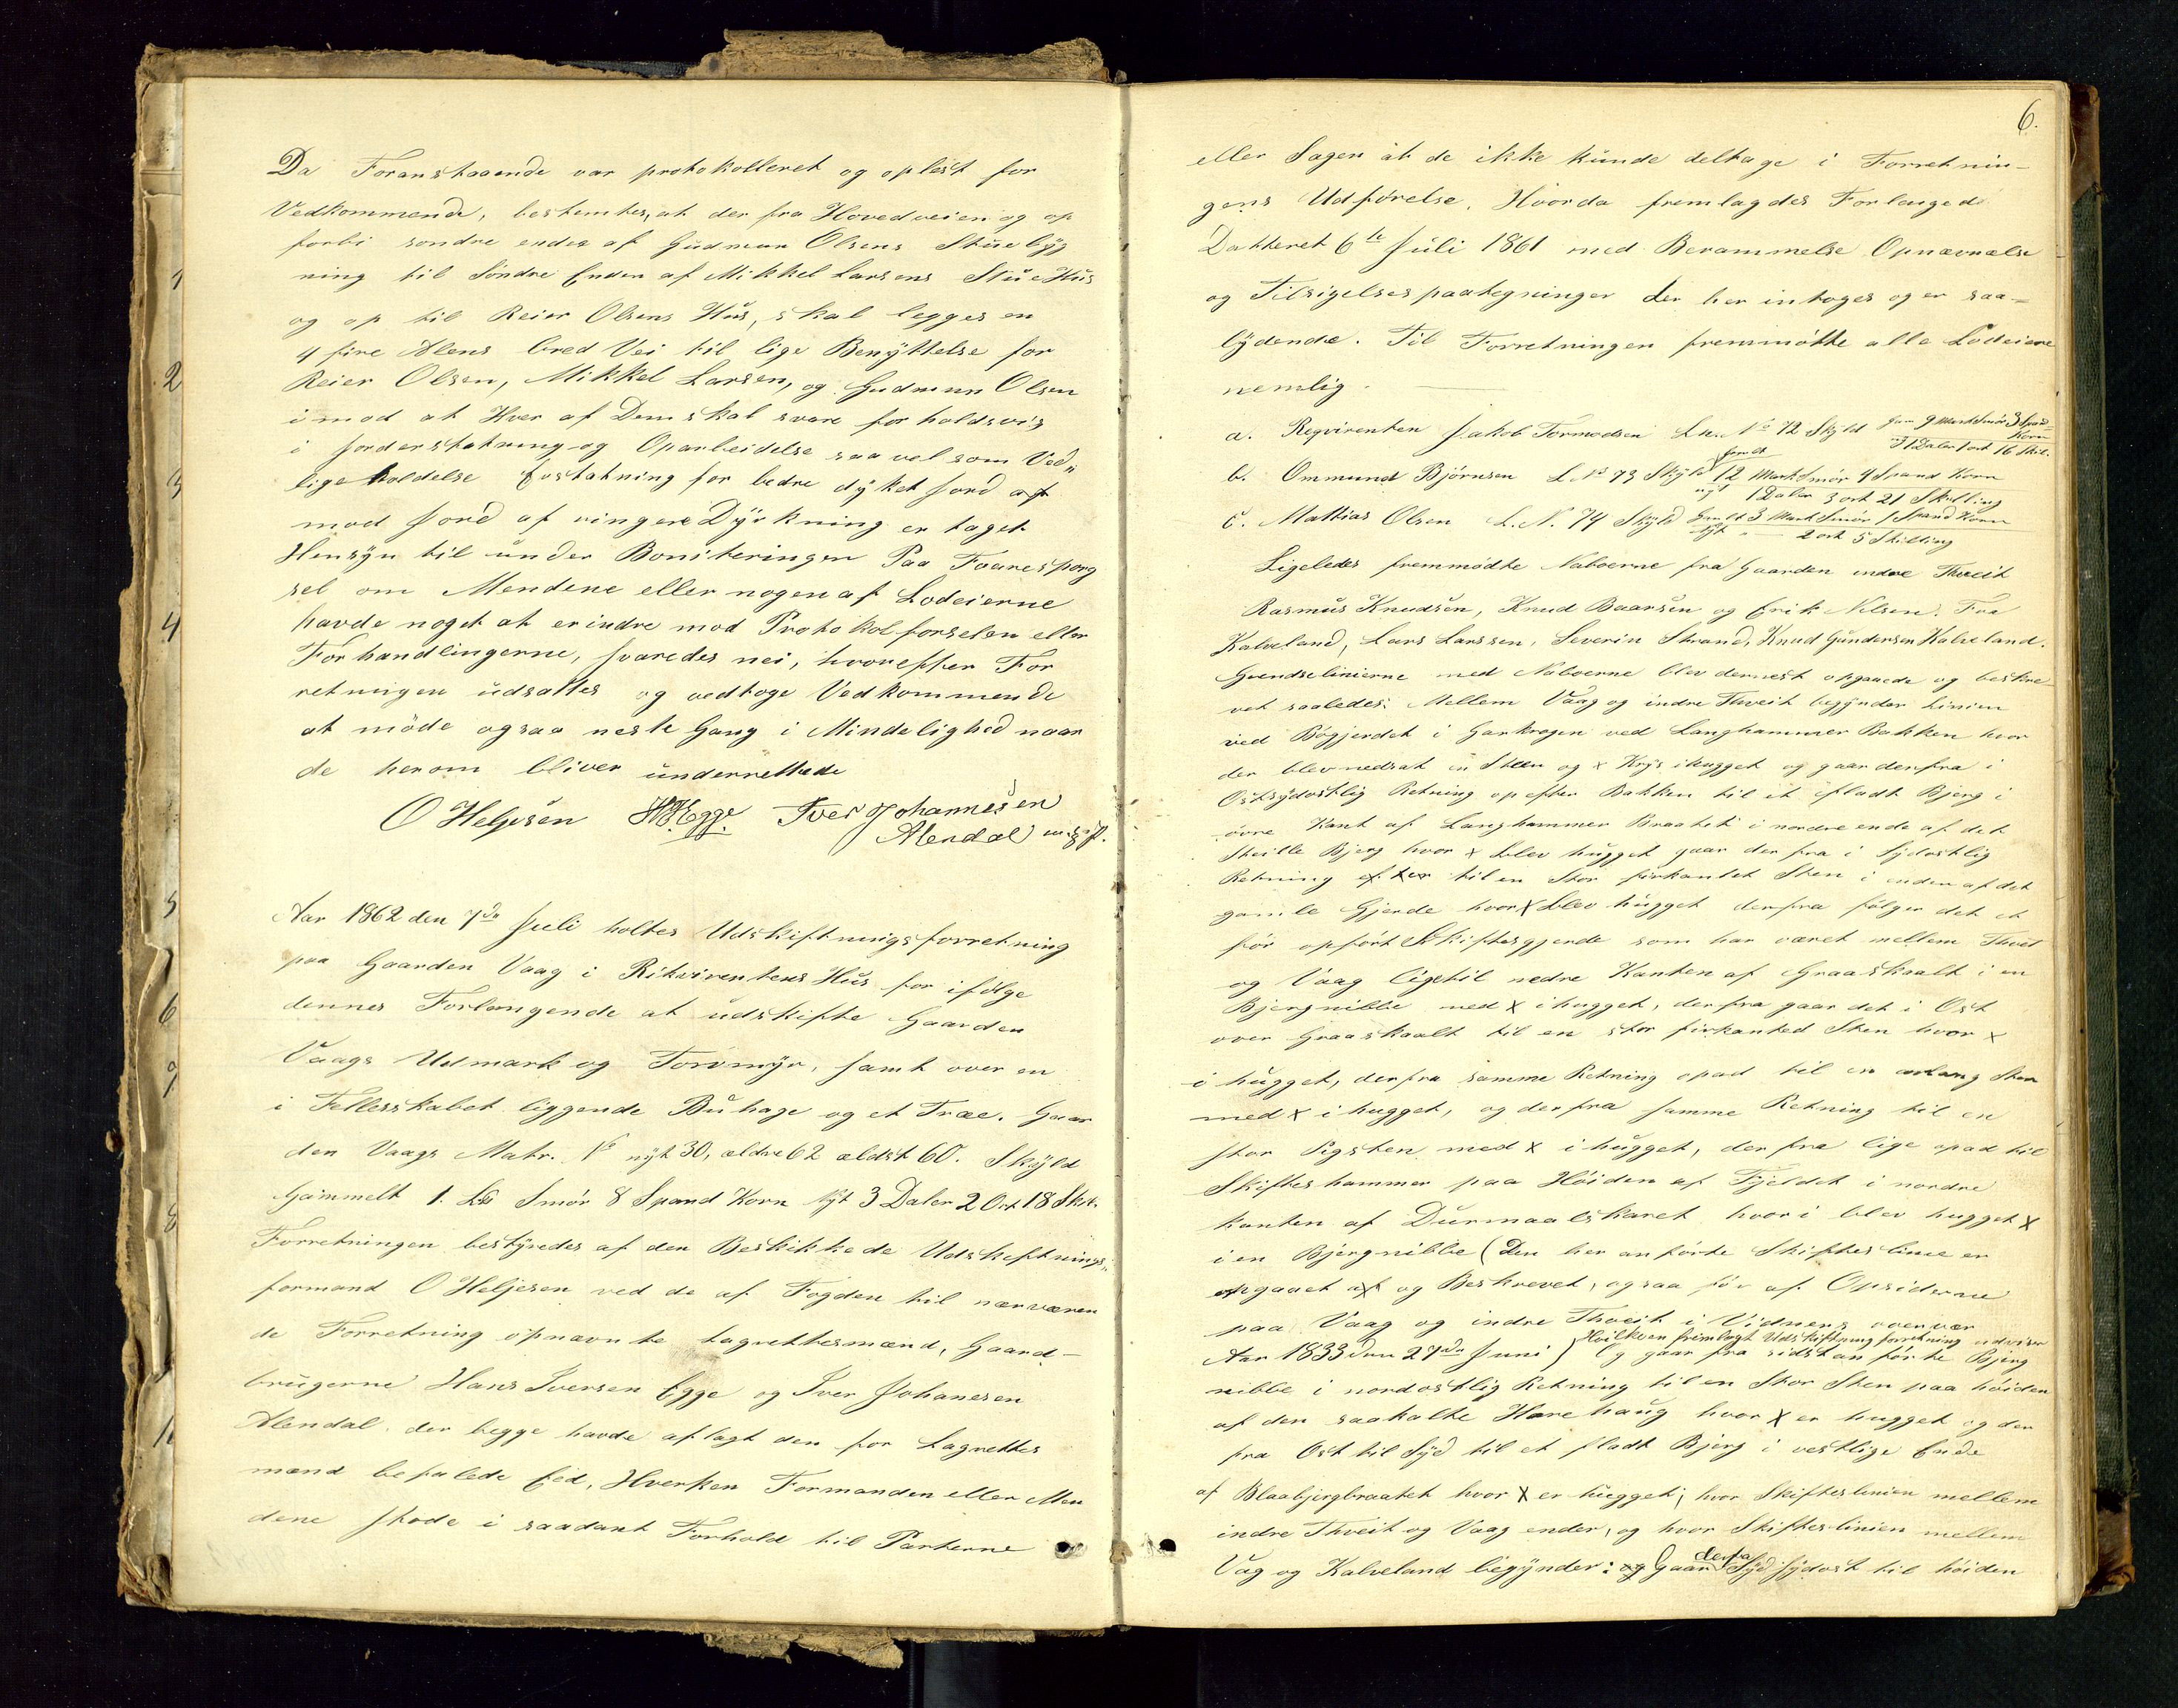 Da Foranstaaende var protokolleret og oplæst for
Vedkommende, bestemtes, at der fra Hovedveien og op
forbi søndre enden af Gudmun Olsens Stuebyg
ning til Søndre Enden af Mikkel Larsens StueHus
og op til Reier Olsens Hus, skal legges en
4 fire Alens bred Vei til lige Benyttelse for
Reier Olsen, Mikkel Larsen, og Gudmun Olsen
imod at Hver af Dem skal svare forholdsvis
i Jorderstatning og Oparbeidelse saavel som Ved„
ligeholdelse Erstatning for bedre dyrket Jord af
mod Jord af ringere Dyrkning er taget
Hensyn til under Boniteringen Paa Foresporg
sel om Mendene eller nogen af Lodeierne
havde noget at erindre mod Protokolforselen eller
Forhandlingerne, svaredes nei, hvorefter For
retningen udsattes og vedtoge Vedkommende
at møde ogsaa neste Gang i Mindelighed naar
de herom bliver underrettede
O Heljesen HIEgge. Iver Johannesen
Alendal m. p. P.
Aar 1862 den 7de Juli holtes Udskiftningsforretning
paa Gaarden Vaag i Rikvirentens Hus for ifølge
dennes Forlangende at udskifte Gaarden
Vaags Udmark og Torvmyr, samt over en
i Fellesskabet liggende Buhage og et Træe. Gaar
den Vaags Matr. No nyt 30, ældre 62 ældst 60. Skyld
Gammelt 1. Lb Smør 8 Spand Korn Nyt 3 Daler 2 Ort 18 Skil.
Forretningen bestyredes af den Beskikkede Udskiftnings„
formand O Heljesen ved de af Fogden til nærværen
de Forretning opnævnte Lagrettesmænd, Gaard-
brugerne Hans Iversen Egge og Iver Johanesen
Alendal, der begge havde aflagt den for Lagrettes
mænd befalede Eed, Hverken Formanden eller Men
dene stode i saadant Forhold til Parterne
6.
eller Sagen at de ikke kunde deltage i Forretnin-
gens Udførelse. Hvorda fremlagdes Forlanged
Datteret 6te Juli 1861 med Berammelse Opnævnelse
og Tilsigelsespaategninger der her intages og er saa=
lydende. Til Forretningen fremmøtte alle Lodeiere
nemslig.
a. Reqvirenten Jakob Tormodsen L.N. No 72 Skyld gam 9 Mark Smør 3 Spad Korn
nyt 1 Daler 1 ort 16 Skil.
b. Ommund Bjørnsen L No 73 Skyld gamlt 12 Mark Smør 4 Spand Korn
nyt 1 Daler 3 ort 21 Skilling
c. Mattias Olsen L. N. 74 Skyld Gamlt 3 Mark Smør 1 Spand Korn
nyt „ — 2 ort 5 Skilling
Ligeledes fremmødte Naboerne fra Gaarden indre Thveit
Rasmus Knudsen, Knud Baarsen og Erik Nilsen. Fra
Kalveland, Lars Larssen, Severin Strand, Knud Gundersen Kalveland.
Grendselinierne med Naboerne blev dernest opgaaede og beskre-
vet saaledes: Mellem Vaag og indre Thveit begynder Linien
ved Bøgjerdet i Garkrogen ved Langhammer Bakken hvor
der blev nedsat en Steen og x Krys ihugget og gaar derfra i
Ostsydostlig Retning op efter Bakken til et fladt Bjerg i
øvre Kant af Langhammer Braatet i nordre ende af det
Steille Bjerg hvor x blev hugget gaar der fra i Sydostlig
Retning efter til en Stor firkantet Sten i enden af det
gamle Gjerde hvor x blev hugget derfra følger det et
før opført Skiftesgjerde som har været mellem Thveit
og Vaag ligetil nedre Kanten af Graaskalt i en
Bjergnibbe med x ihugget, derfra gaar det i Ost
over Graaskaalt til en stor firkanted Sten hvor x
ihugget, derfra samme Retning opad til en avlang Sten
med x i hugget, og derfra samme Retning til en
stor Pigsten med x i hugget, der fra lige opad til
Skifteshammer paa Høiden af Fjeldet i nordre
kanten af Durmaalskaret hvori blev hugget x
i en Bjergnibbe (Den her anførte Skifteslinie er
opgaaet af og Beskrevet, ogsaa før af Opsiderne
paa Vaag og indre Thveit i Vidners overvær
Aar 1833 den 27de Juni) Hvilken fremlagt Udskiftning forretning udviser
Og gaar fra sidst anførte Bjerg
nibbe i nordostlig Retning til en Stor Sten paa høiden
af den saakalte Harehaug hvor x er hugget og der
fra Ost til Syd til et fladt Bjerg i vestlige Ende
af Blaabjergbraatet hvor x er hugget; hvor Skifteslinien mellem
indre Thveit og Vaag ender, og hvor Skifteslinien mellem
Vag og Kalveland begynder: og Gaar derfra Syd sydost til høiden